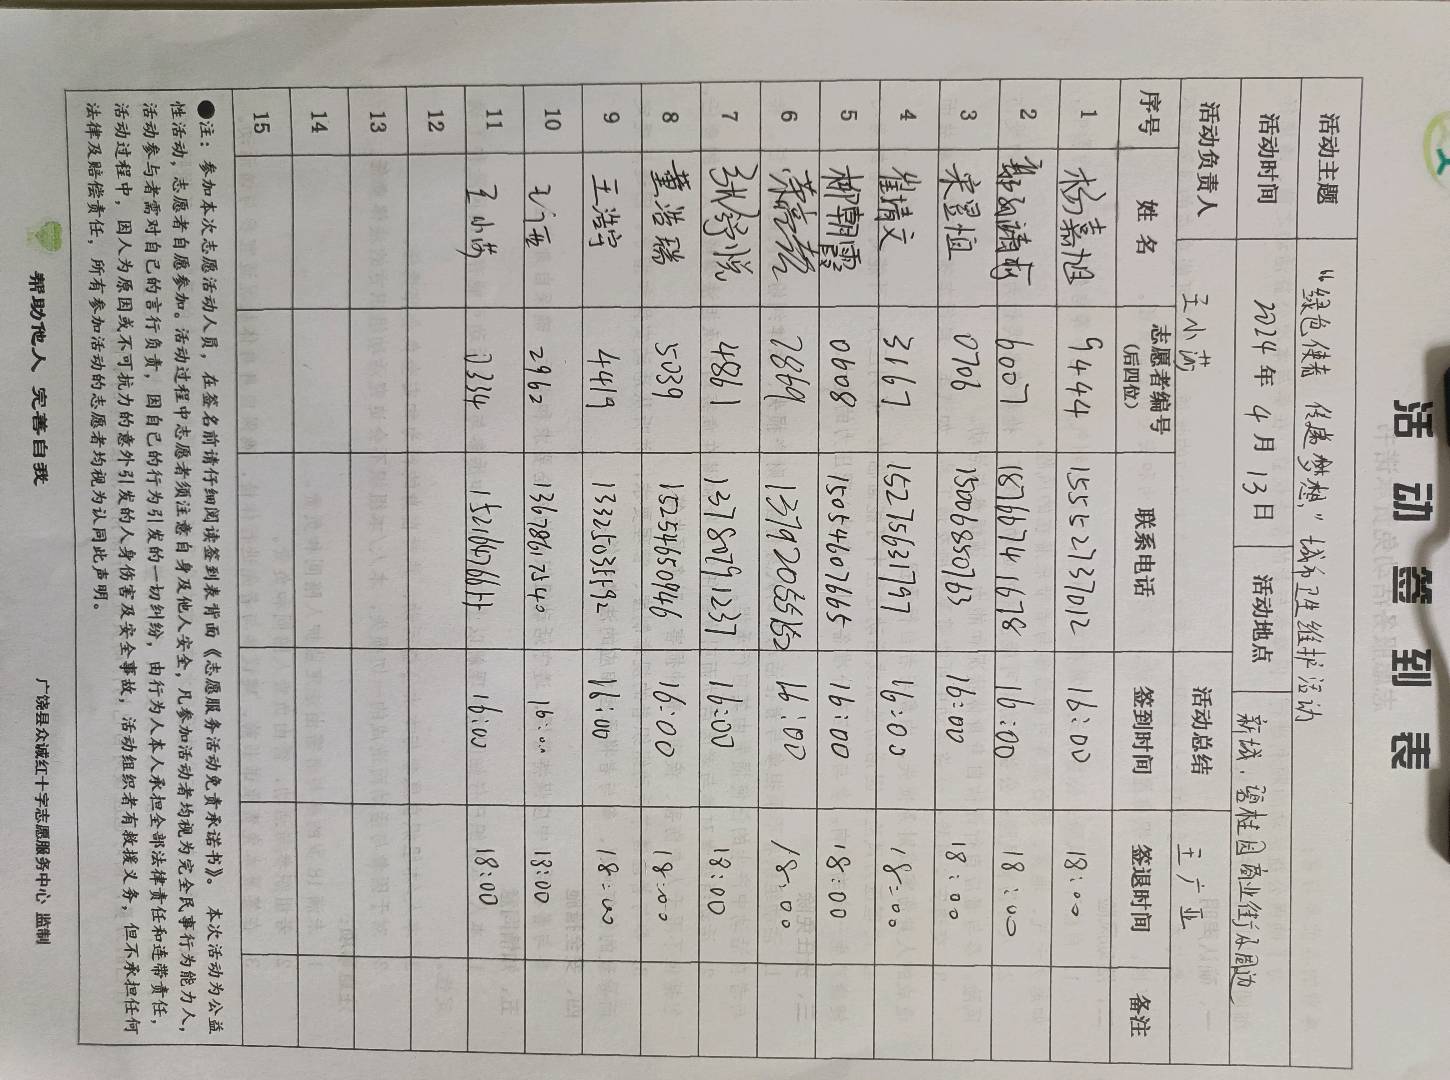 活动签到表
活动主题 “绿色使者 传递梦想”城市卫生维护活动
活动时间 2024年4月13日 活动地点 新城.碧桂园商业街及周边
活动负责人 王小芳 活动总结 王广亚
序号 姓名 志愿者编号（后四位） 联系电话 签到时间 签退时间 备注
1 杨嘉旭 9444 15552737012 16:00 18:00
2 6007 18766741678 16:00 18:00
3 宋昱恒 0706 15006850763 16:00 18:00
4 崔婧文 3167 15275631797 16:00 18:00
5 柳朝霞 0608 15054607665 16:00 18:00
6 7869 16:00 18:00
7 张舒悦 4861 13780791237 16:00 18:00
8 董浩瑞 5039 15254650946 16:00 18:00
9 王浩宇 4419 13325035592 16:00 18:00
10 2962 13678617540 16:00 18:00
11 王小芳 3334 16:00 18:00
12
13
14
15
●注：参加本次志愿活动人员，在签名前请仔细阅读签到表背面《志愿服务活动免责承诺书》。本次活动为公益
性活动，志愿者自愿参加。活动过程中志愿者须注意自身及他人安全，凡参加活动者均视为完全民事行为能力人，
活动参与者需对自己的言行负责，因自己的行为引发的一切纠纷，由行为人本人承担全部法律责任和连带责任，
活动过程中，因人为原因或不可抗力的意外引发的人身伤害及安全事故，活动组织者有救援义务，但不承担任何
法律及赔偿责任，所有参加活动的志愿者均视为认同此声明。
帮助他人 完善自我 广饶县众诚红十字志愿服务中心 监制